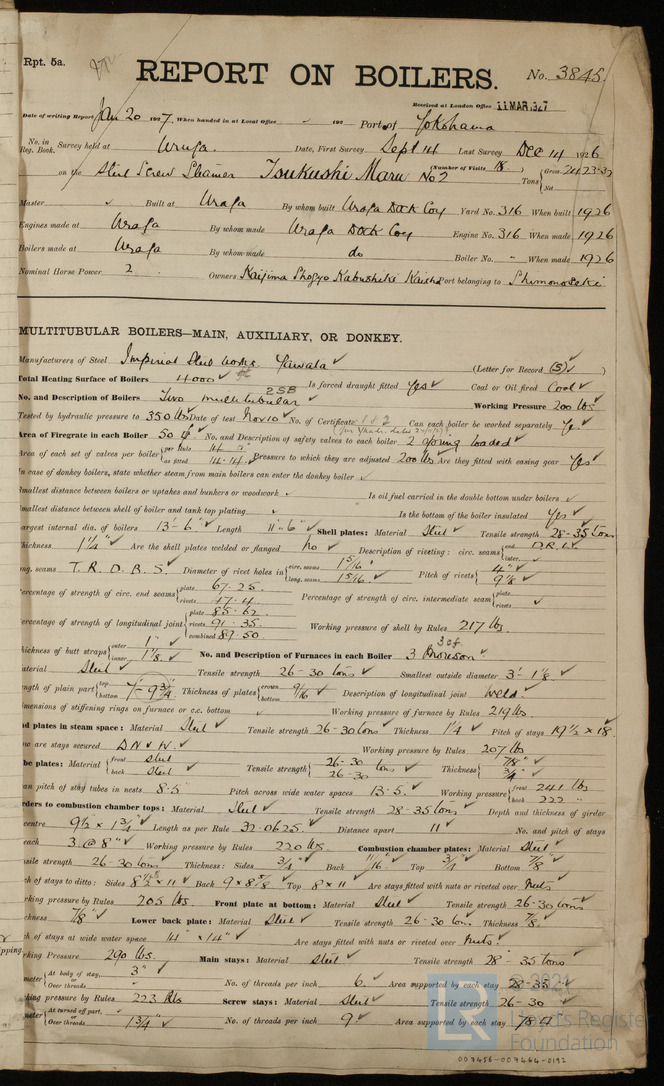 Rpt. 5a.
REPORT ON BOILERS.
No. 3845.
Received at London Office 11 MAR 1927
Date of writing Report Jan 20 1927. When handed in at Local Office 192 Port of Yokohama
No. in Reg. Book. Survey held at Uraga. Date, First Survey Sept 14 Last Survey Dec 14 1926
on the Steel Screw Steamer Tsukushi Maru No 2 (Number of Visits 18.) Tons Gross 2423.32 Net
Master Built at Uraga By whom built Uraga Dock Coy Yard No. 316 When built 1926
Engines made at Uraga By whom made Uraga Dock Coy Engine No. 316 When made 1926
Boilers made at Uraga By whom made do Boiler No. " When made 1926
Nominal Horse Power 2 Owners Kaijima Shogyo Kabushiki Kaisha Port belonging to Shimonoseki
MULTITUBULAR BOILERS—MAIN, AUXILIARY, OR DONKEY.
Manufacturers of Steel Imperial Steel Works. Yawata ✓ (Letter for Record (S) ✓ )
Total Heating Surface of Boilers 4000 ✓ Is forced draught fitted Yes ✓ Coal or Oil fired Coal ✓
No. and Description of Boilers Two multitubular 2SB ✓ Working Pressure 200 lbs
Tested by hydraulic pressure to 350 lbs Date of test Nov 10 ✓ No. of Certificate 1 & 2 Can each boiler be worked separately Yes ✓
Area of Firegrate in each Boiler 50 ✓ No. and Description of safety valves to each boiler 2 Spring loaded ✓
Area of each set of valves per boiler per Rule as fitted 14.14 ✓ Pressure to which they are adjusted 200 lbs Are they fitted with easing gear Yes ✓
In case of donkey boilers, state whether steam from main boilers can enter the donkey boiler ✓
Smallest distance between boilers or uptakes and bunkers or woodwork ✓ Is oil fuel carried in the double bottom under boilers ✓
Smallest distance between shell of boiler and tank top plating ✓ Is the bottom of the boiler insulated Yes ✓
Largest internal dia. of boilers 13'-6" ✓ Length 11'-6" ✓ Shell plates: Material Steel ✓ Tensile strength 28-35 tons
Thickness 1 1/4" ✓ Are the shell plates welded or flanged No ✓ Description of riveting: circ. seams end D.R.L. ✓ inter.
long. seams T.R.D.B.S. ✓ Diameter of rivet holes in circ. seams 1 5/16" long. seams 1 5/16" ✓ Pitch of rivets 4" ✓ 9 1/8" ✓
Percentage of strength of circ. end seams plate 67.25. rivets 47.4 Percentage of strength of circ. intermediate seam plate rivets ✓
Percentage of strength of longitudinal joint plate 85.62 rivets 91.35 combined 89.50 Working pressure of shell by Rules 217 lbs.
Thickness of butt straps outer 1" ✓ inner 1 1/8" ✓ No. and Description of Furnaces in each Boiler 3 Morison ✓
Material Steel ✓ Tensile strength 26-30 tons ✓ Smallest outside diameter 3'-1 1/8" ✓
Length of plain part top bottom 7'-9 3/4" Thickness of plates crown bottom 9/16" ✓ Description of longitudinal joint Weld ✓
Dimensions of stiffening rings on furnace or c.c. bottom ✓ Working pressure of furnace by Rules 219 lbs.
End plates in steam space: Material Steel ✓ Tensile strength 26-30 tons ✓ Thickness 1 1/4 ✓ Pitch of stays 19 1/2 × 18
How are stays secured D.N & W. ✓ Working pressure by Rules 207 lbs
Tube plates: Material front Steel back Steel ✓ Tensile strength 26-30 26-30 tons ✓ Thickness 7/8" ✓ 3/4" ✓
Mean pitch of stay tubes in nests 8.5 Pitch across wide water spaces 13.5. ✓ Working pressure front 241 lbs back 222 "
Girders to combustion chamber tops: Material Steel ✓ Tensile strength 28-35 tons ✓ Depth and thickness of girder
at centre 9 1/2 × 1 3/4" ✓ Length as per Rule 32.0625. ✓ Distance apart 11" ✓ No. and pitch of stays
in each 3 @ 8" ✓ Working pressure by Rules 220 lbs. Combustion chamber plates: Material Steel ✓
Tensile strength 26-30 tons ✓ Thickness: Sides 3/4" ✓ Back 11/16" ✓ Top 3/4 ✓ Bottom 7/8 ✓
Pitch of stays to ditto: Sides 8 1/2 × 11 ✓ Back 9 × 8 5/8 ✓ Top 8 × 11 ✓ Are stays fitted with nuts or riveted over Nuts ✓
Working pressure by Rules 205 lbs. Front plate at bottom: Material Steel ✓ Tensile strength 26-30 tons ✓
Thickness 7/8" ✓ Lower back plate: Material Steel ✓ Tensile strength 26-30 tons ✓ Thickness 7/8. ✓
Pitch of stays at wide water space 14" × 14" ✓ Are stays fitted with nuts or riveted over Nuts. ✓
Working Pressure 290 lbs. Main stays: Material Steel ✓ Tensile strength 28-35 tons ✓
Diameter At body of stay, or Over threads 3" ✓ No. of threads per inch 6. ✓ Area supported by each stay
Working pressure by Rules 223 lbs Screw stays: Material Steel ✓ Tensile strength 26-30 ✓
Diameter At turned off part, or Over threads 1 3/4" ✓ No. of threads per inch 9 ✓ Area supported by each stay 78.4 ✓
© 2021
LR
Lloyd's Register
Foundation
007456-007464-0192